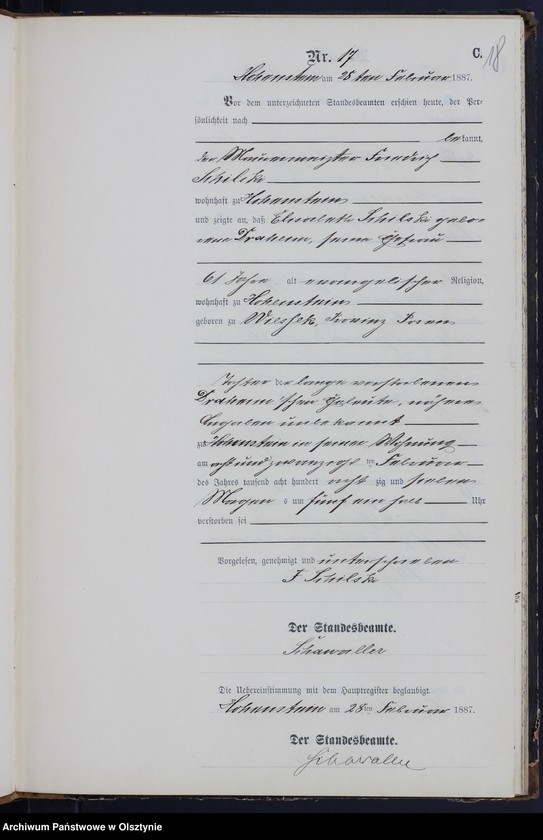 Nr. 17
C.
18
Hohenstein am 28ten Februar 1887.
Vor dem unterzeichneten Standesbeamten erschien heute, der Per-
sönlichkeit nach
bekannt,
der Maurermeister Friedrich
Schilski
wohnhaft zu Hohenstein
und zeigte an, daß Elisabeth Schilski gebo-
rene Draheim, seine Ehefrau
61 Jahre alt evangelischer Religion,
wohnhaft zu Hohenstein
geboren zu Provinz Posen
Tochter der lange verstorbenen
Draheim'schen Eheleute, nähere
Angaben unbekannt
zu Hohenstein in seiner Wohnung
am acht und zwanzigsten Februar
des Jahres tausend acht hundert acht zig und sieben
Morgens um fünf ein halb Uhr
verstorben sei
Vorgelesen, genehmigt und unterschrieben
F Schilski
Der Standesbeamte.
Die Uebereinstimmung mit dem Hauptregister beglaubigt.
Hohenstein am 28ten Februar 1887.
Der Standesbeamte.
Archiwum Państwowe w Olsztynie